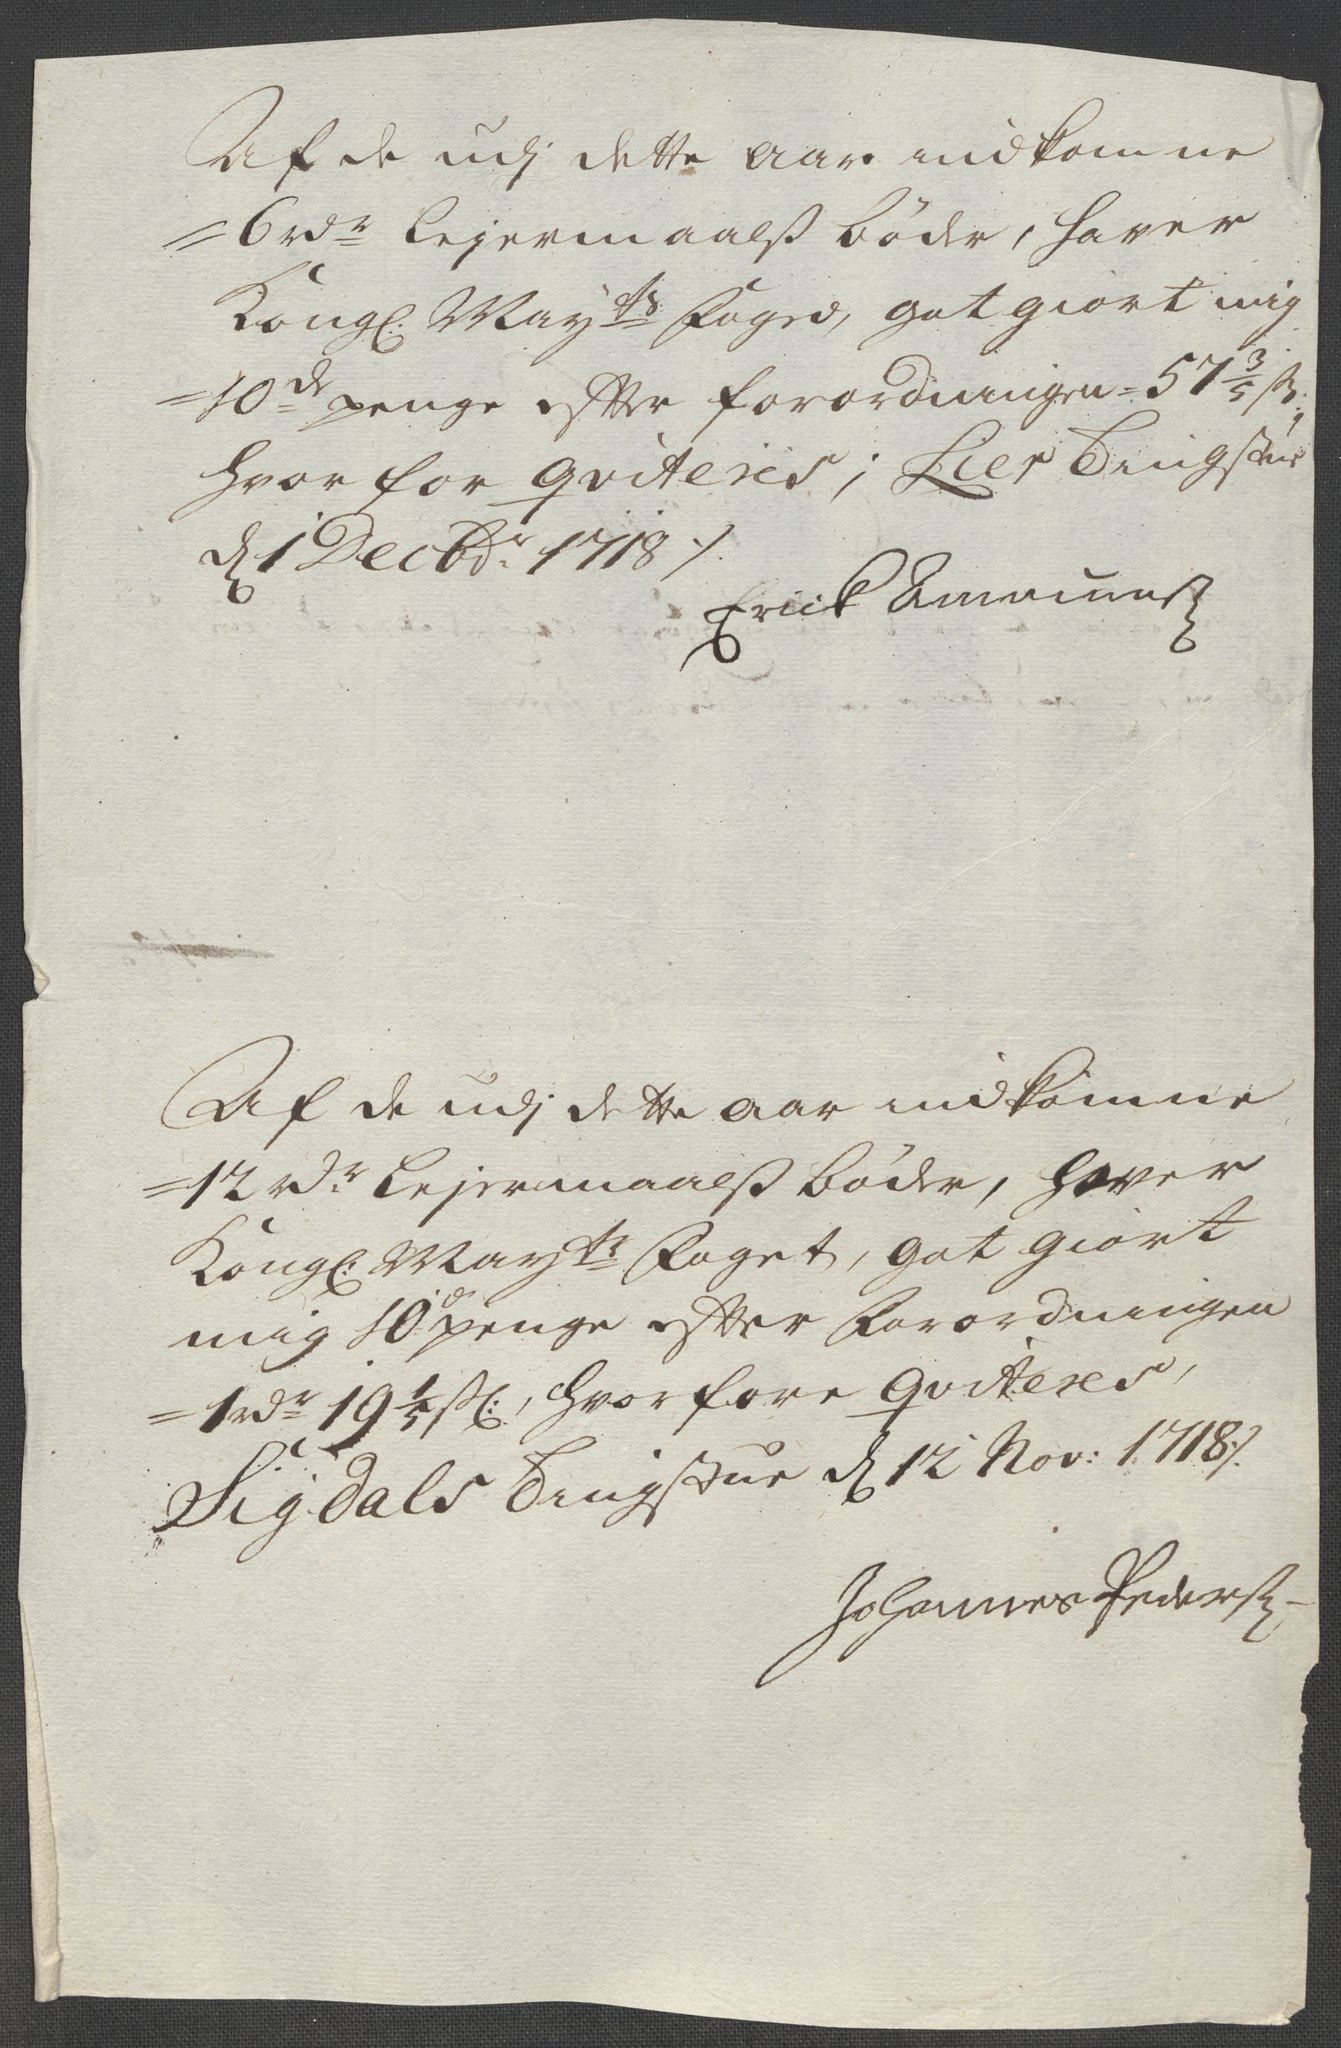 Af de udj dette aar indkomne
=6 rdr Lejermaalsß bøder, haver
Kongl: Mayts Foged, got giort mig
=10de penge efter forordningen = 57 3/5 ß:
hvor for qviteres; Lier tingstue
d 1 Decbdr. 1718 ./.
Erick
Af de udj dette aar indkomne
=12 rdr Lejermaalsß bøder, haver
Kongl: Mayts Foget, got giort
mig 10de penge efter Forordningen
=1 rdr 19 1/5 ß:, hvorfore qviteres,
Sigdals tingstue d 12 Nov: 1718 ./.
Johannes Pedersß